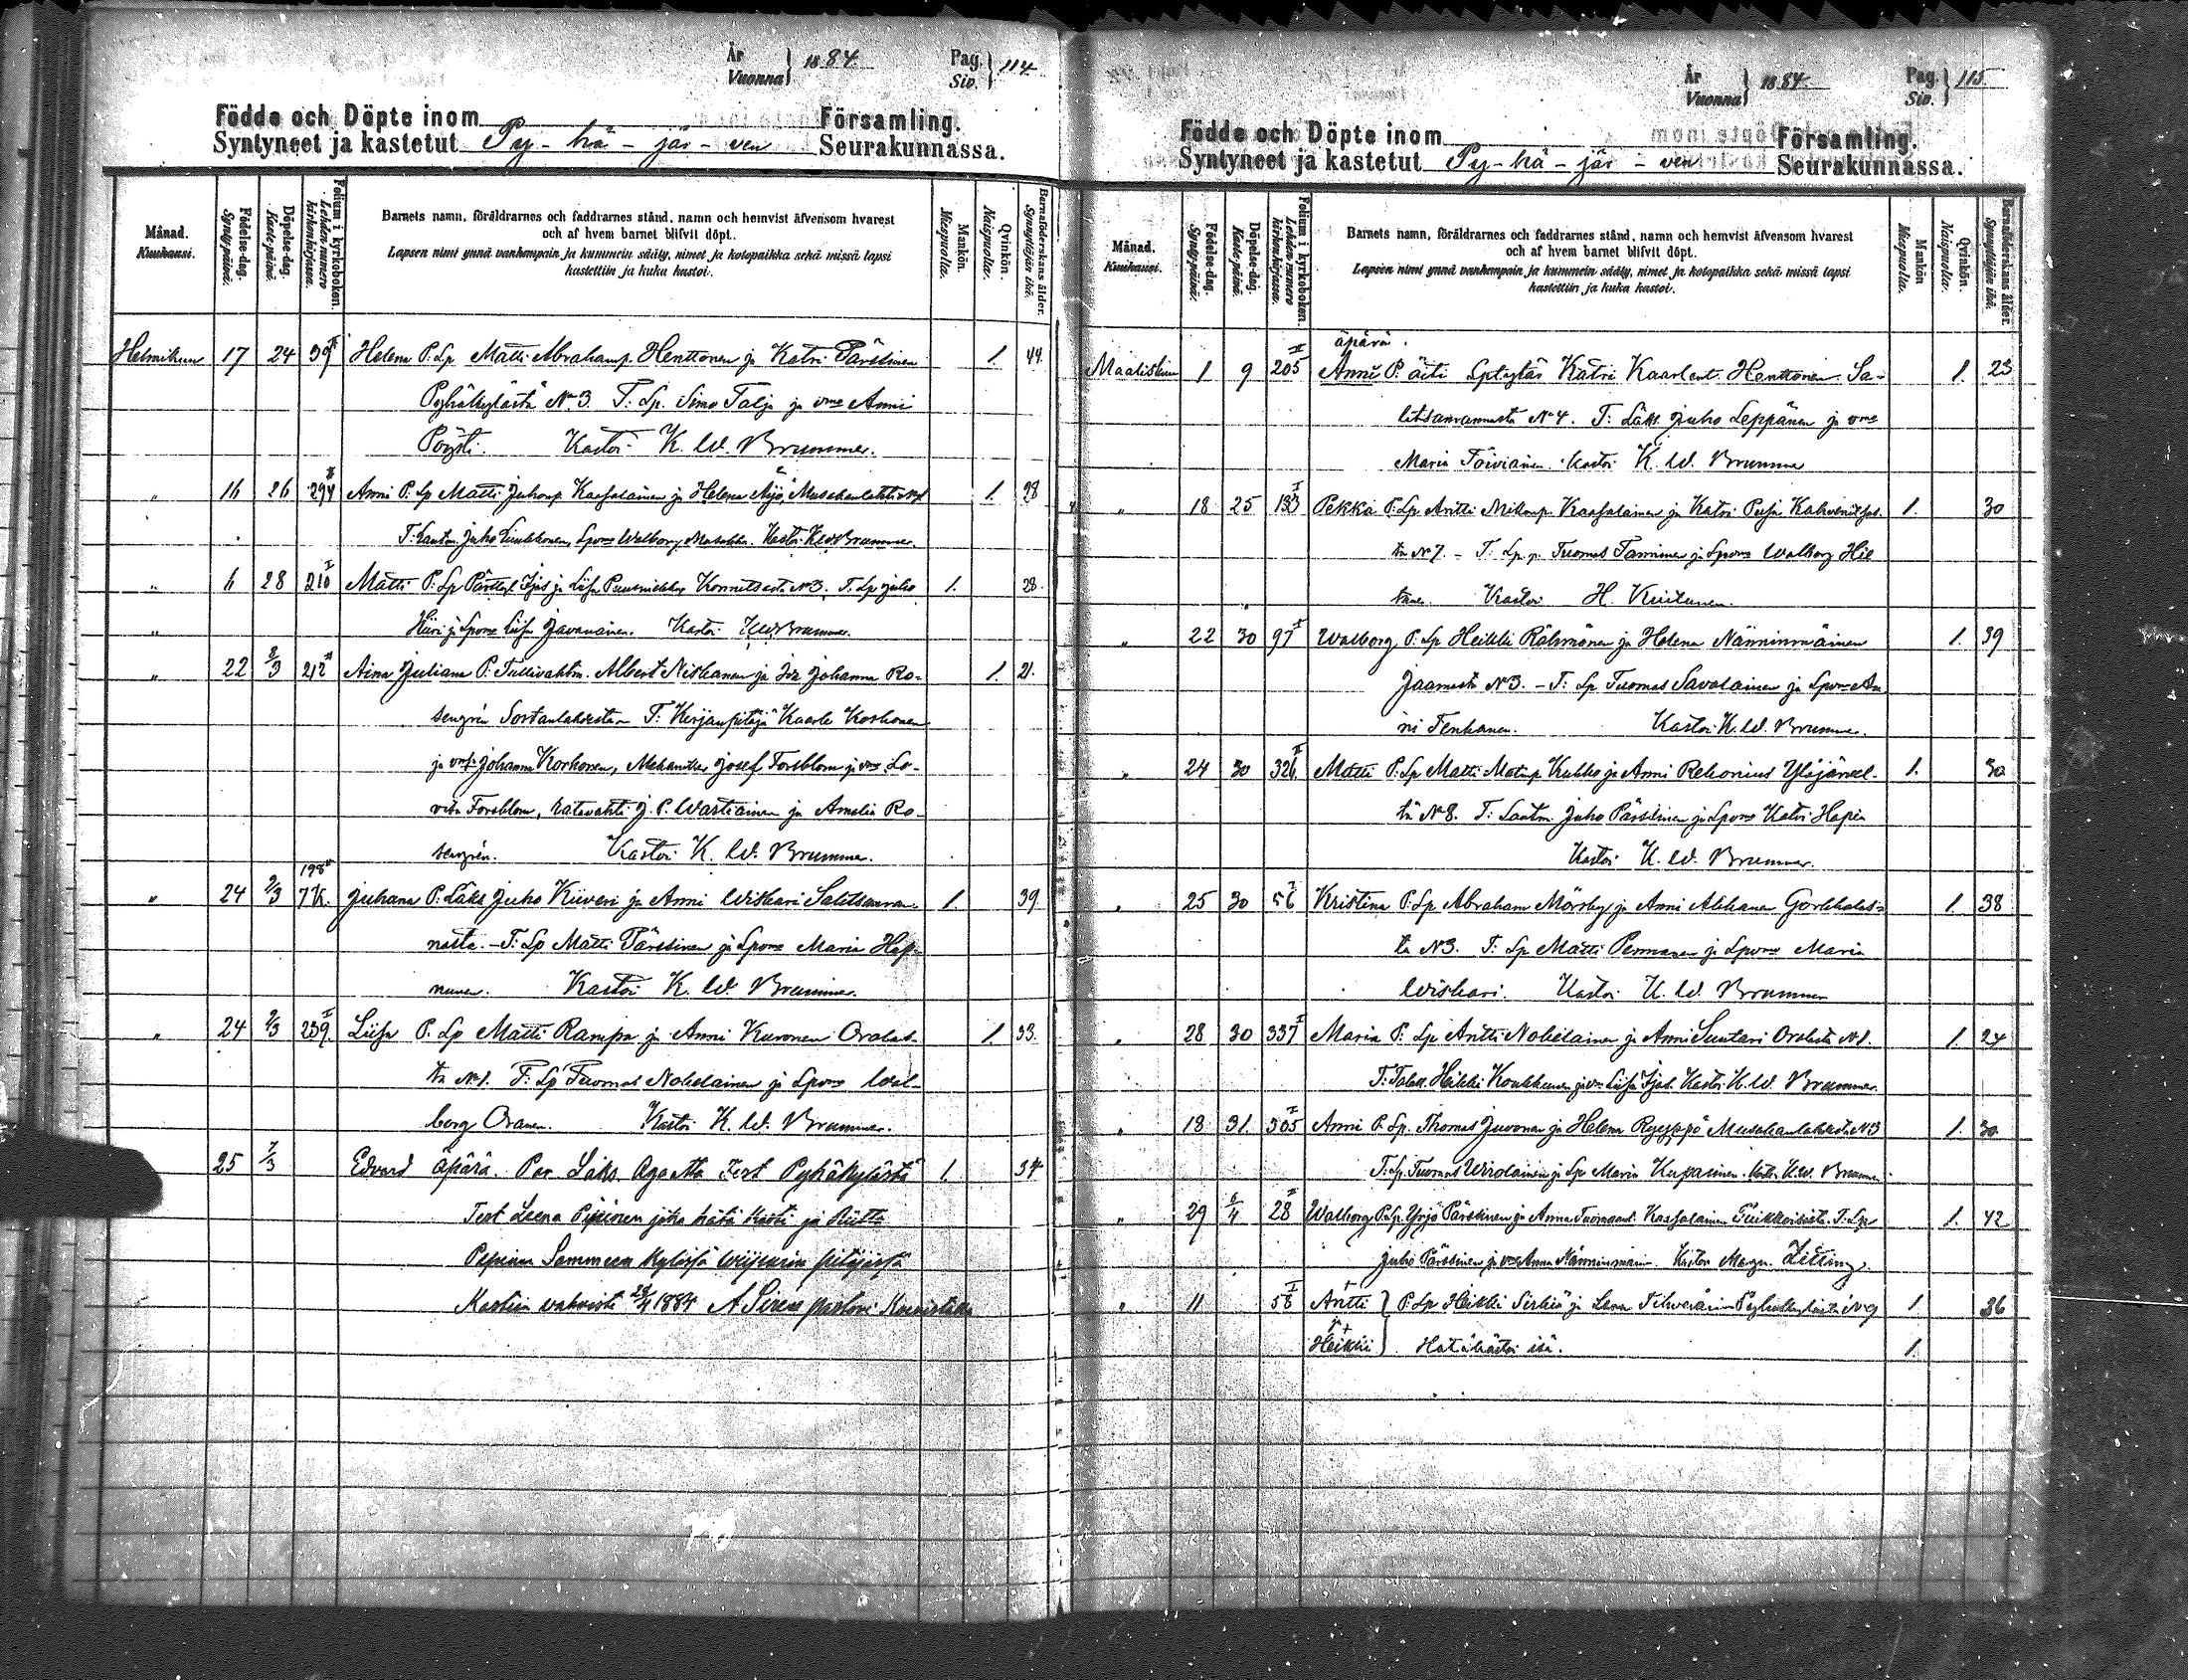 År
Vuonna } 1884.
Pag.
Siv. } 114.
Födde och Döpte inom Församling.
Syntyneet ja kastetut Py-hä-jär-ven Seurakunnassa.
Månad. Kuukausi.
Födelse-dag. Synty-päivä.
Döpelse-dag. Kaste-päivä.
Folium i kyrkoboken. Lehden numero kirkonkirjassa.
Barnets namn, föräldrarnes och faddrarnes stånd, namn och hemvist äfvensom hvarest
och af hvem barnet blifvit döpt.
Lapsen nimi ynnä vanhempain ja kummein sääty, nimet ja kotopaikka sekä missä lapsi
kastettiin ja kuka kastoi.
Mankön. Miespuolia.
Qvinkön. Naispuolia.
Barnaföderskans ålder. Synnyttäjän ikä.
Helmikuu 17 24 39 Helena P. Lp Matti Abrahamp. Henttonen ja Katri Pärssinen 1. 44.
Pyhäkylästä No 3. T: Lp. Simo Talja ja vmo Anni
Pöysti. Kastoi K. W. Brummer.
" 16 26 294 II Anni P. Lp Matti Juhonp. Kaasalainen ja Helena Äijö, 1. 28
T. Juho Liukkonen, Lpvmo Walborg Kastoi KWBrummer.
" 6 28 210 I Matti P. Lp Pärttyl Ijäs ja Liisa Konnitsasta No 3. T. Lp Juho 1. 28.
" ja Lpvmo Liisa Javanainen. Kastoi KWBrummer.
" 22 2/3 212 II Aina Juliana P. Tullivahtm. Albert Niskanen ja Ida Johanna Ro- 1. 21.
sengrén Sortanlahdesta T: Kirjanpitäjä Kaarle Korhonen
ja Johanna Korhonen, Josef Forsblom ja vmo Lo-
visa Forsblom, J. P. Wartiainen ja Amalia Ro-
sengrén. Kastoi K. W. Brummer.
198 II
" 24 2/3 7K. Juhana P. Läks Juho Kiiveri ja Anni Wiskari Salitsanran- 1. 39.
nasta. – T: Lp Matti Pärssinen ja Lpvmo Maria Hap-
nunen. Kastoi K. W. Brummer.
" 24 2/3 239. I Liisa P. Lp Matti Rampa ja Anni Kuronen Oralas- 1. 33.
ta No 1. T: Lp Tuomas Nokelainen ja Lpvmo Wal-
borg Oranen. Kastoi K. W. Brummer.
25 7/3 Edvard äpärä. Läks. Agatta Pyhäkylästä 1. 34
Leena joka hätä kasti ja Riitta
kylässä Wiipurin pitäjässä
Kastiin vahvisti 28/4 1884 A Siren
År
Vuonna } 1884.
Pag.
Siv. } 115
Födde och Döpte inom Församling.
Syntyneet ja kastetut Py-hä-jär-ven Seurakunnassa.
Månad. Kuukausi.
Födelse-dag. Synty-päivä.
Döpelse-dag. Kaste-päivä.
Folium i kyrkoboken. Lehden numero kirkonkirjassa.
Barnets namn, föräldrarnes och faddrarnes stånd, namn och hemvist äfvensom hvarest
och af hvem barnet blifvit döpt.
Lapsen nimi ynnä vanhempain ja kummein sääty, nimet ja kotopaikka sekä missä lapsi
kastettiin ja kuka kastoi.
Mankön Miespuolia.
Qvinkön. Naispuolia.
Barnaföderskans ålder. Synnyttäjän ikä.
äpärä.
Maaliskuu 1 9 205 II Anni P. äiti Lptytär Katri Kaarlent. Henttonen Sa- 1. 23
litsanrannasta No 4. T: Läks. Juho Leppänen ja vmo
Maria Toiviainen. Kastoi K. W. Brummer
" 18 25 133 I Pekka P. Lp Antti Mikonp. Kaasalainen ja Katri Pusa Kahvenitsas- 1. 30
ta No 7. – T: Lp. p. Tuomas Tamminen ja Lpvmo Walborg Hie
tanen. Kastoi H. Kiitunen.
" 22 30 97 I Walborg P. Lp Heikki Rähmönen ja Helena Nänninmäinen 1. 39
Jaamasta No 3. – T: Lp Tuomas Savolainen ja Lpvmo An
ni Tenhanen. Kastoi K. W. Brummer.
" 24 30 326 II Matti P. Lp Matti Matinp Kukko ja Anni Rekonius Yläjärvel- 1. 30
tä No 8. T: Lautm. Juho Pärssinen ja Lpvmo Katri Hapia
Kastoi K. W. Brummer.
" 25 30 56 I Kristina P. Lp Abraham Mörsky ja Anni Akkanen Gorkkalas- 1. 38
ta No 3. T: Lp Matti Permanen ja Lpvmo Maria
Wiskari. Kastoi K. W. Brummer
" 28 30 337 I Maria P. Lp Antti Nokelainen ja Anni Suutari Oralasta No 1. 1. 24
T: Heikki Koukkunen ja vmo Liisa Ijäs. Kastoi K. W. Brummer.
" 18 31. 305 I Anni P. Lp. Thomas Juvonen ja Helena Ryyppö Musakanlahdesta No 3 1. 30
T. Lp. Tuomas Wirolainen ja Lp Maria Kupanen. Kastoi K. W. Brummer
" 29 6/4 28 I Walborg P. Lp. Yrjö Pärssinen ja Anna Tuomaant. Kaasalainen T. Lp 1. 42
Juho Pärssinen ja vmo Anna Nänninmäinen. Kastoi Zitting.
" 11 58 I Antti } P. Lp Heikki Sirkiä ja Leena Pyhäkylästä No 9 1. 36
Heikki } Hätäkastoi isä. 1.